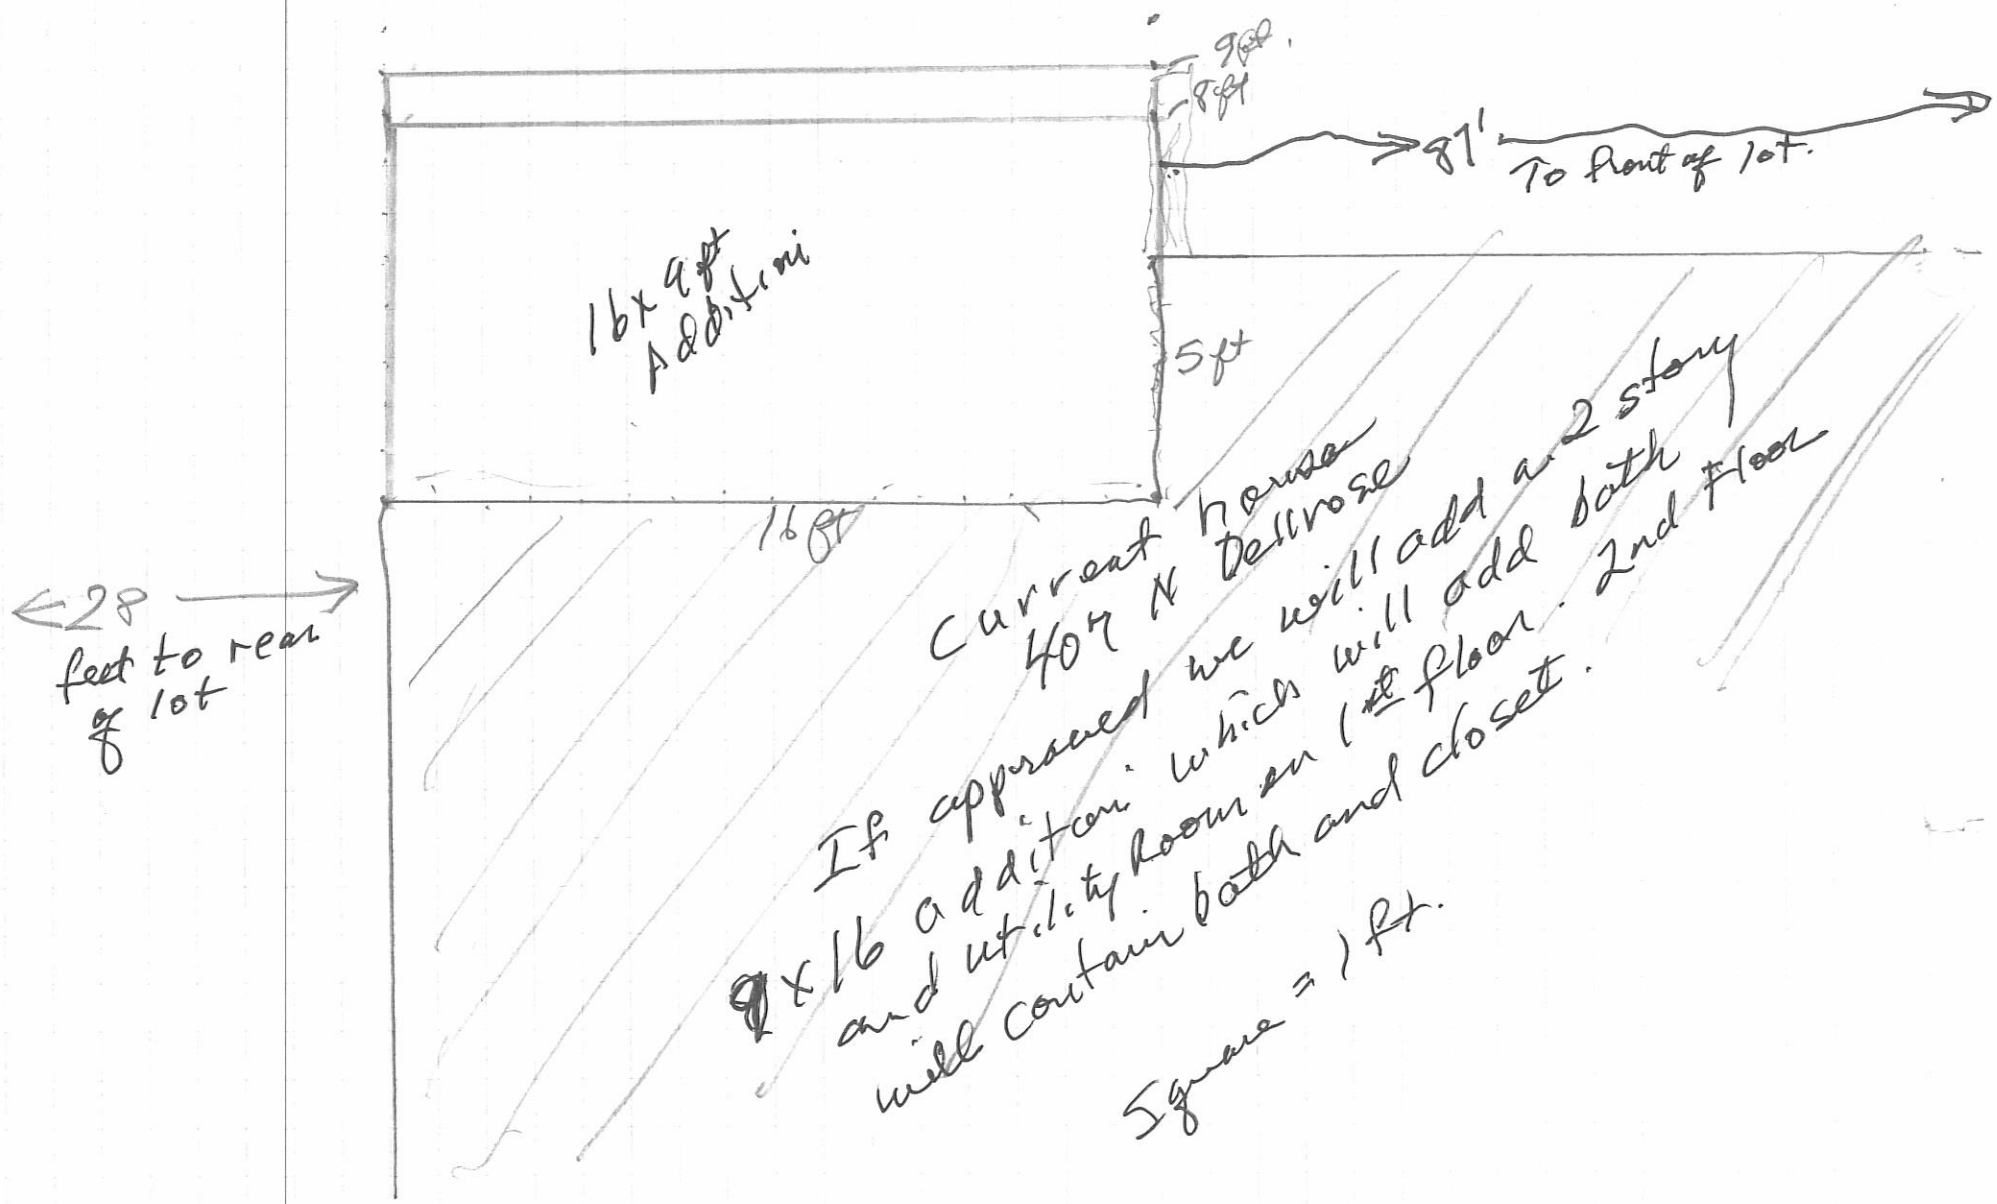 9ft.
8ft
87'
To front of lot.
16x9ft
Addition
5ft
16ft
← 28 →
feet to rear
of lot
Current house
407 N Dellrose
If approved we will add a 2 story
9x16 addition which will add bath
and utility Room on 1st floor. 2nd Floor
will contain bath and closet.
Square = 1 ft.